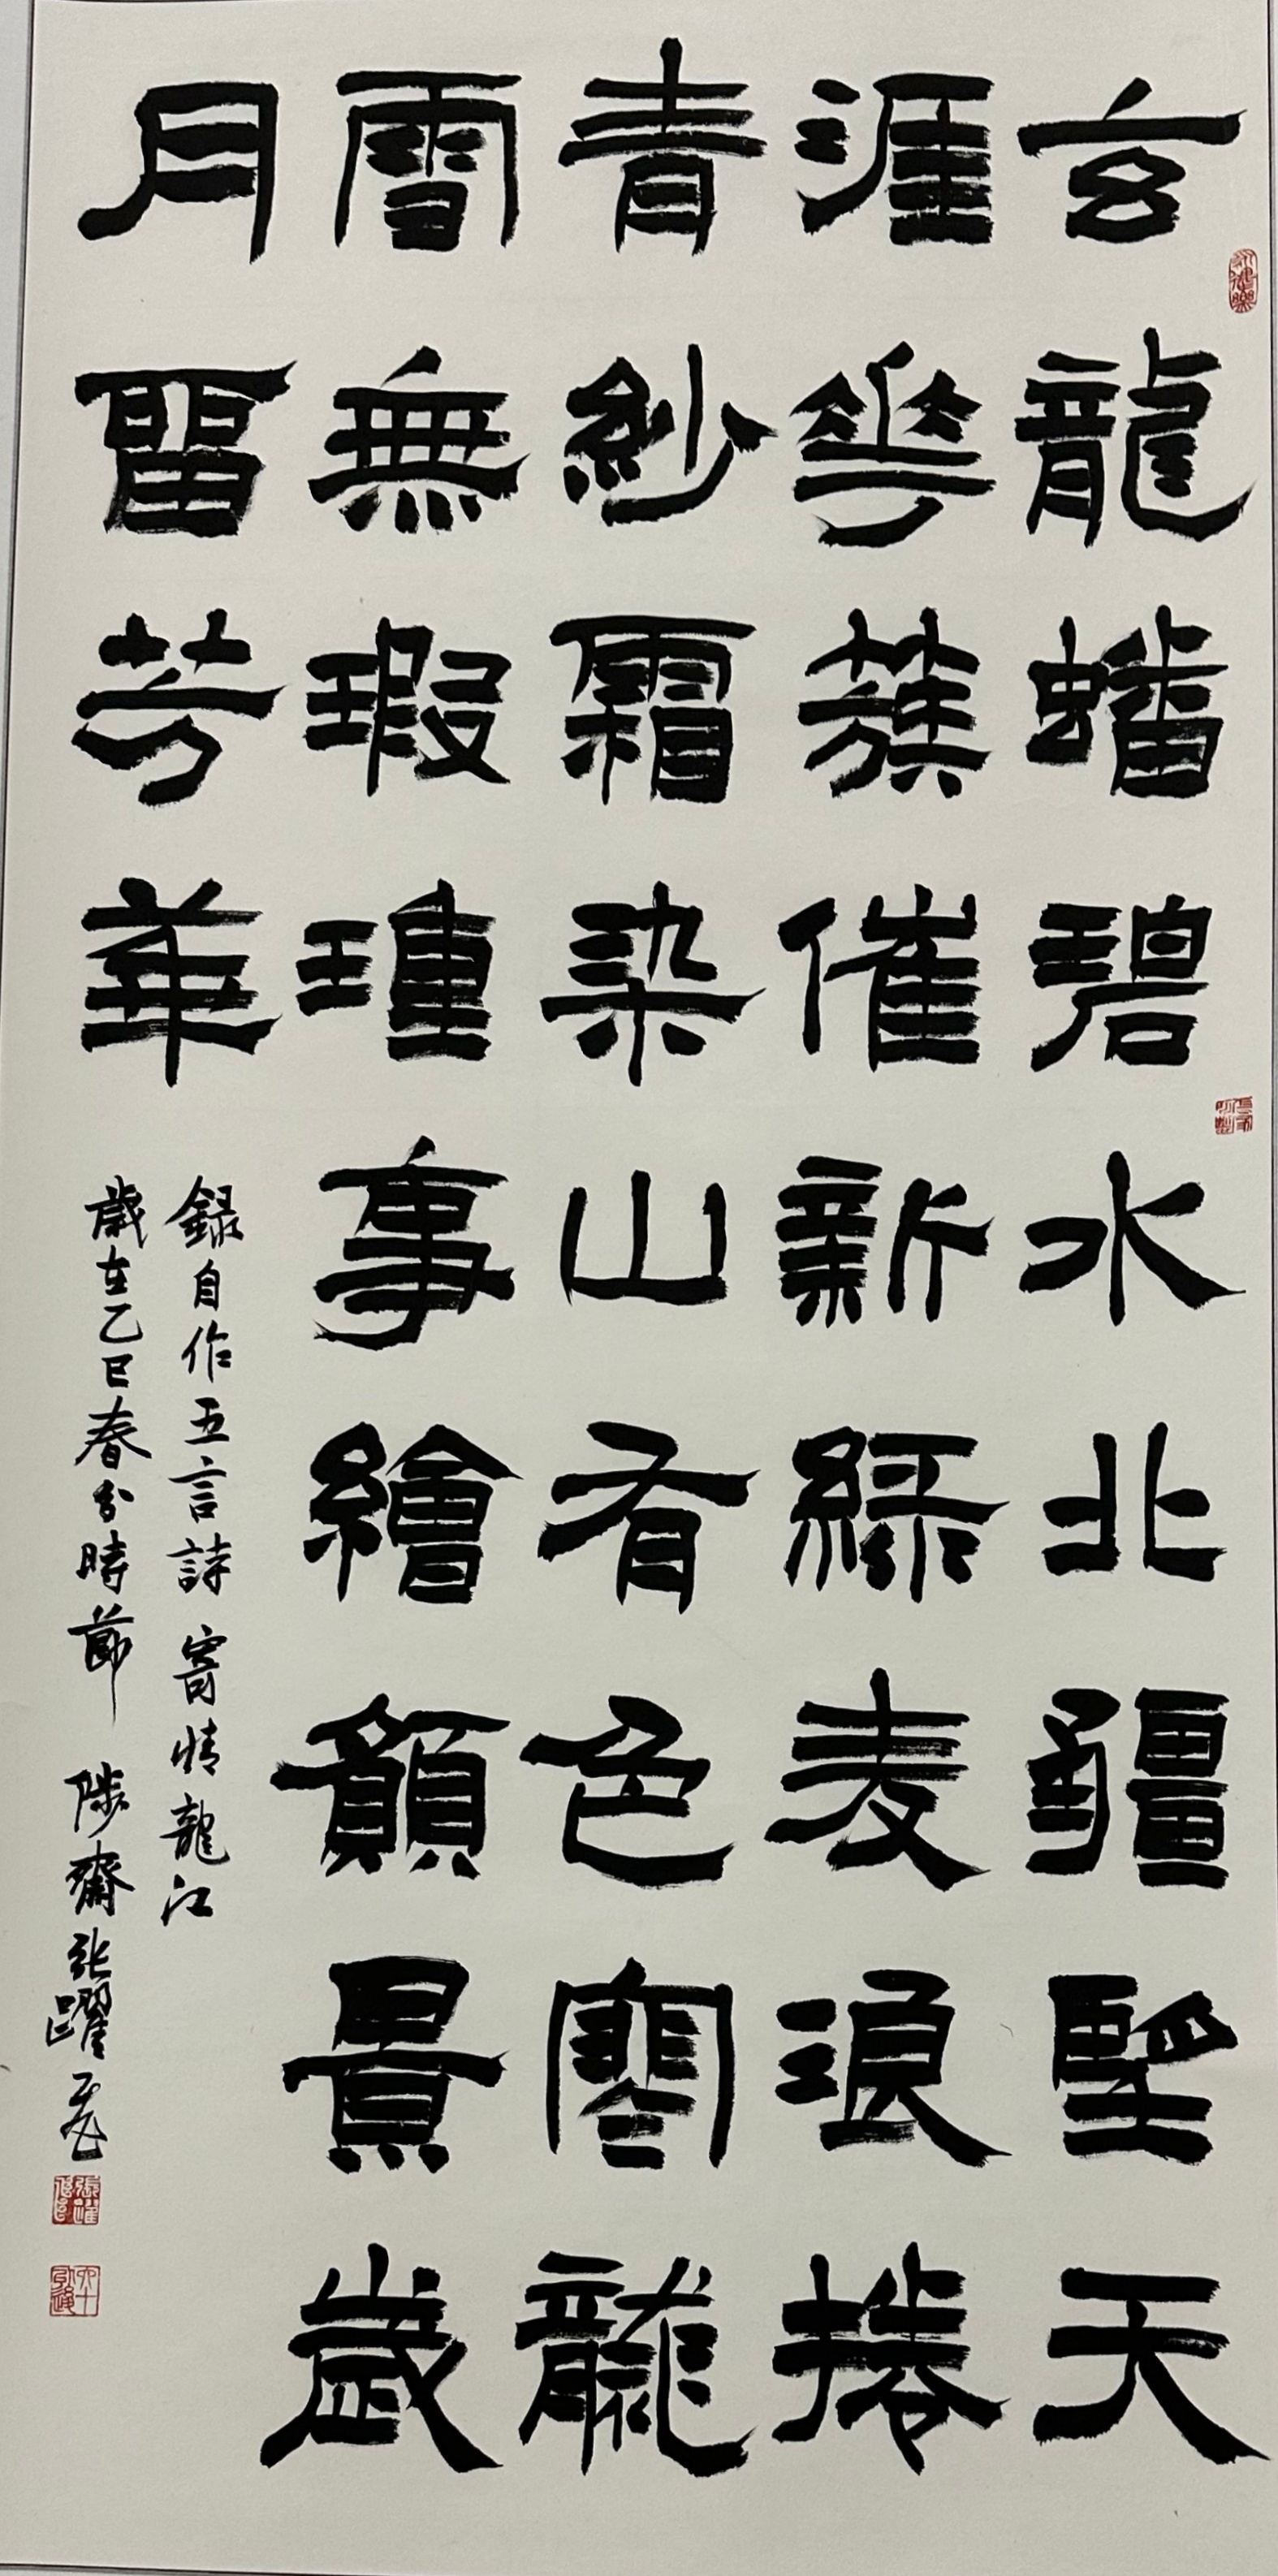 玄龍蟠碧水北疆望天
涯花簇催新綠麦浪捲
青紗霜染山有色寒龍
雪無瑕瑾事繪顏景歲
月留芳華
錄自作五言詩寄情龍江
歲在乙巳春分時節 陟齋張躍飛